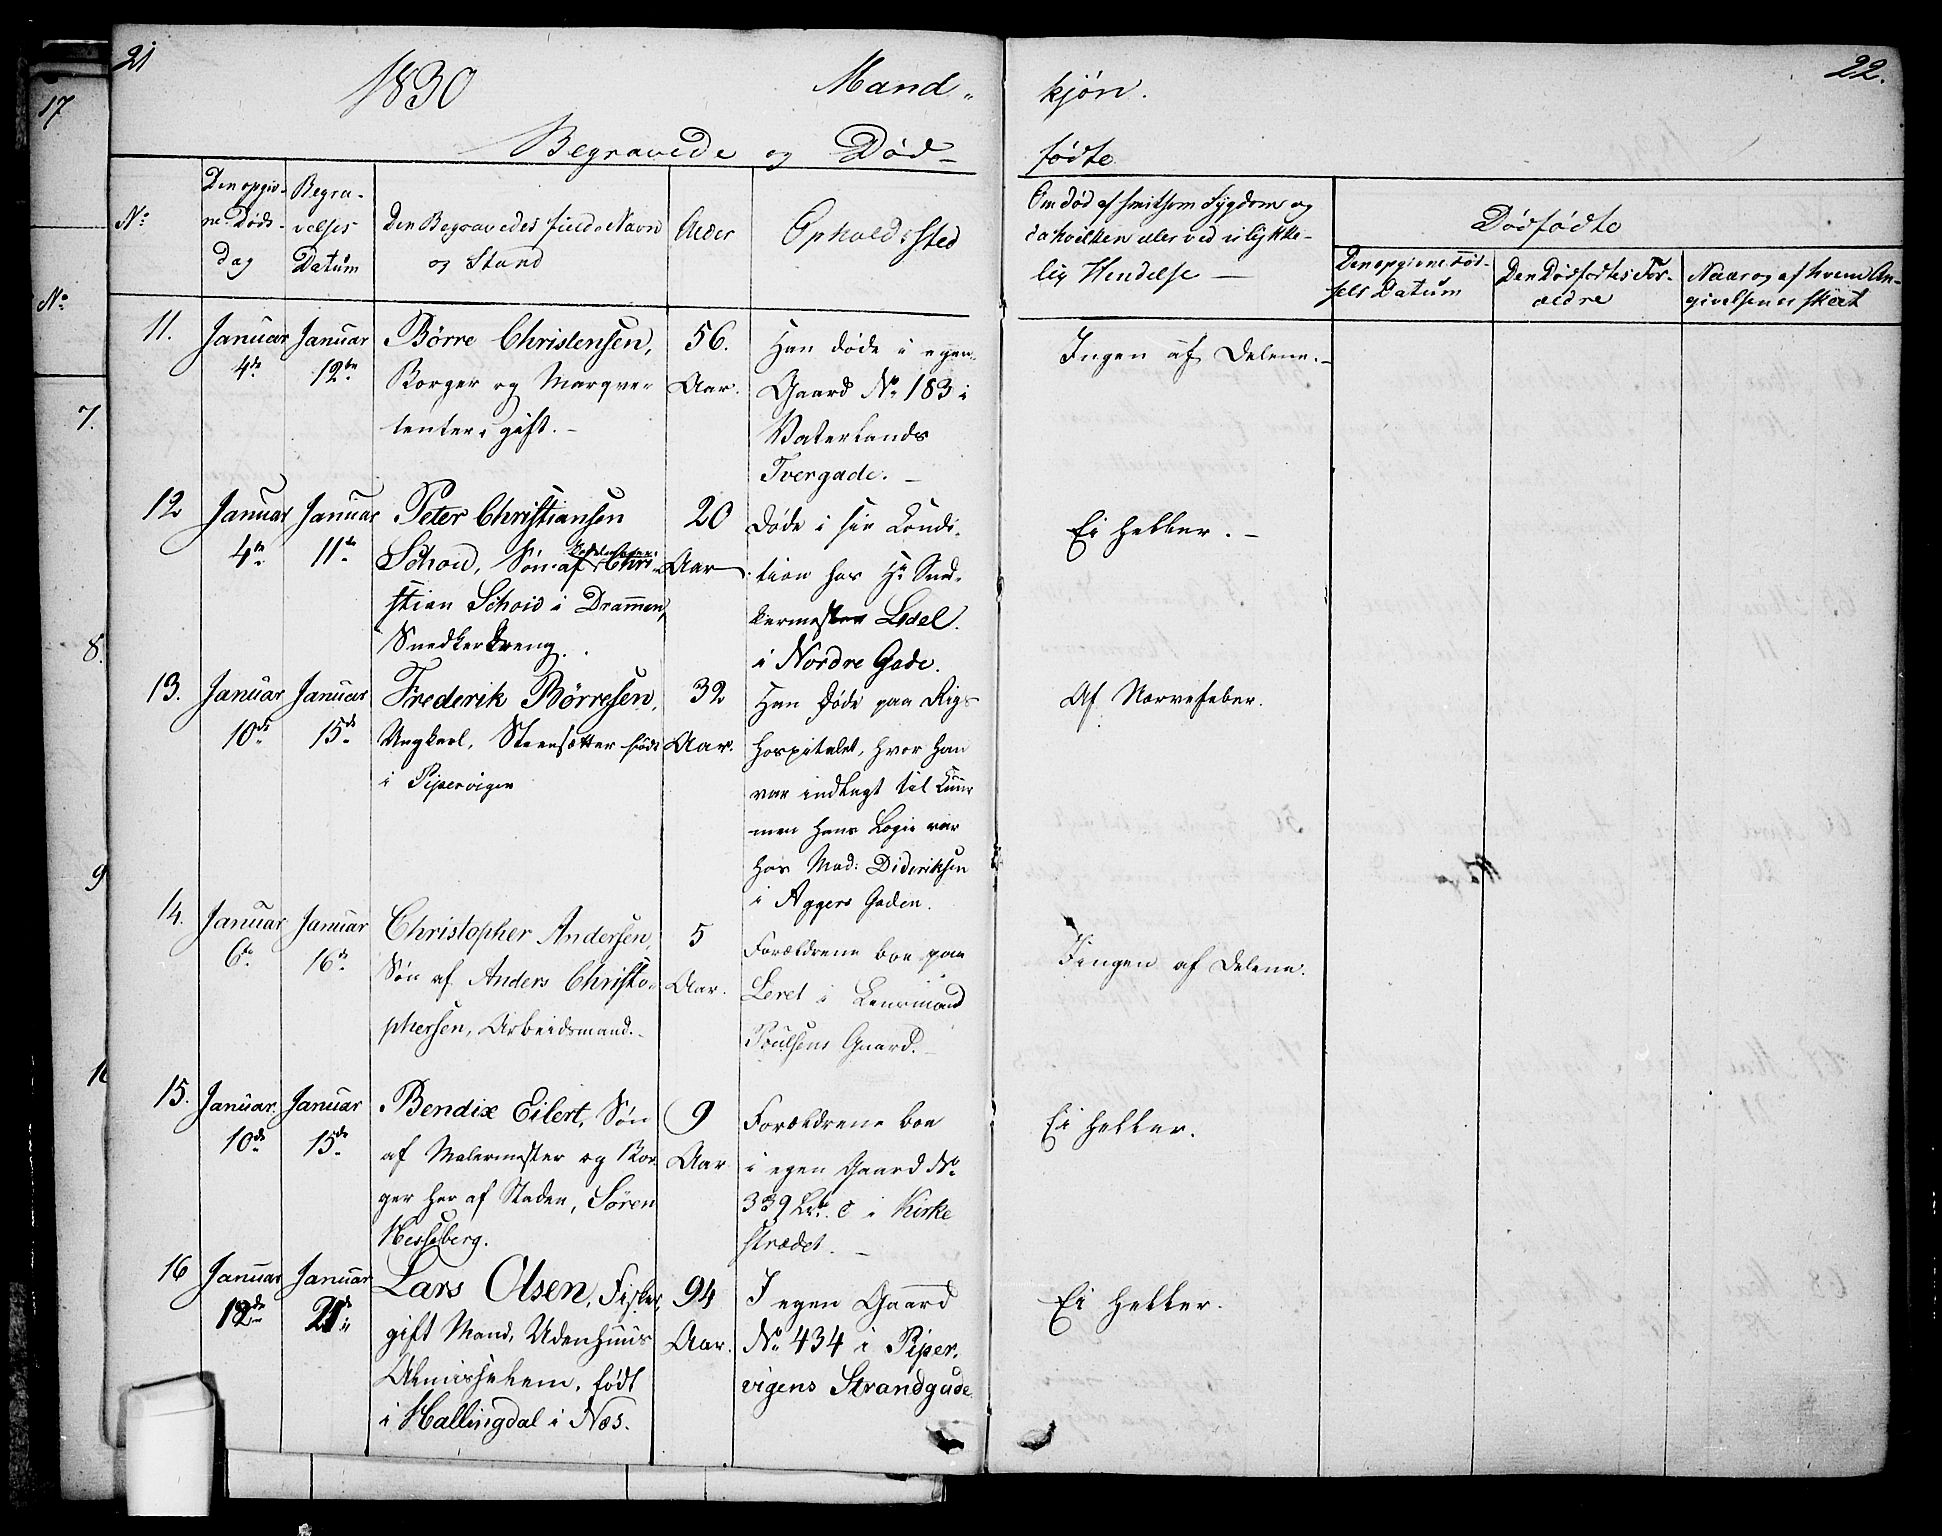 21
1830
Mand-
Begravede og Død-
22.
kjøn.
fødte
No
Den opgiv-
ne Døds-
Dag
Begra-
velses
Datum
Den Begravedes fulde Navn
og Stand
Alder
Opholdssted
Om død af smitsom Sygdom og
da hvilken eller ved ulykke-
lig Hendelse —
Dødfødte
Den opgivne Fød-
sels Datum
Den Dødfødtes For-
ældre
Naar og af hvem An-
givelsen er skeet
11.
Januar
4de
Januar
12te
Børre Christensen,
Borger og Marqve-
tenter, gift. -
56.
Aar.
Han døde i egen
Gaard No 183 i
Vaterlands
Tvergade. -
Ingen af Delene. -
12
Januar
4de
Januar
11te
Peter Christiansen
Schoid, Søn af Chri-
stian Schoid i Drammen,
Snedkerdreng.
20
Aar
døde i sin Condi-
tion hos Hr Sned-
kermester Lidel.
i Nordre Gade.
Ei heller. -
13.
Januar
10de
Januar
15de
Frederik Børresen,
Ungkarl, Steensætter født
i Pipervigen
32
Aar.
Han døde paa Rigs
hospitalet, hvor han
var indlagt til Cuur
men hans Logie var
hos Mad: Dideriksen
i Aggers Gaden.
Af Nervefeber.
14.
Januar
6te
Januar
16de
Christopher Andersen,
Søn af Anders Christo-
phersen, Arbeidsmand. -
5
Aar.
Forældrene boe paa
Leret i Lensmand
Poulsens Gaard. -
Iingen af Delene.
15.
Januar.
10de
Januar
15de
Bendix Eilert, Søn
af Malermester og Bor-
ger her af Staden, Søren
Hesseberg.
9
Aar
Forældrene boe
i egen Gaard No
339 Ltr. C i Kirke
strædet. -
Ei heller.
16
Januar
12de
Januar
21de
Lars Olsen, Fisker,
gift Mand, Udenhuus
Almisselem, født
i Hallingdal i Næs.
94
Aar.
I egen Gaard
No 434 i Piper-
vigens Strandgade
Ei heller.
17
No
7.
8.
9